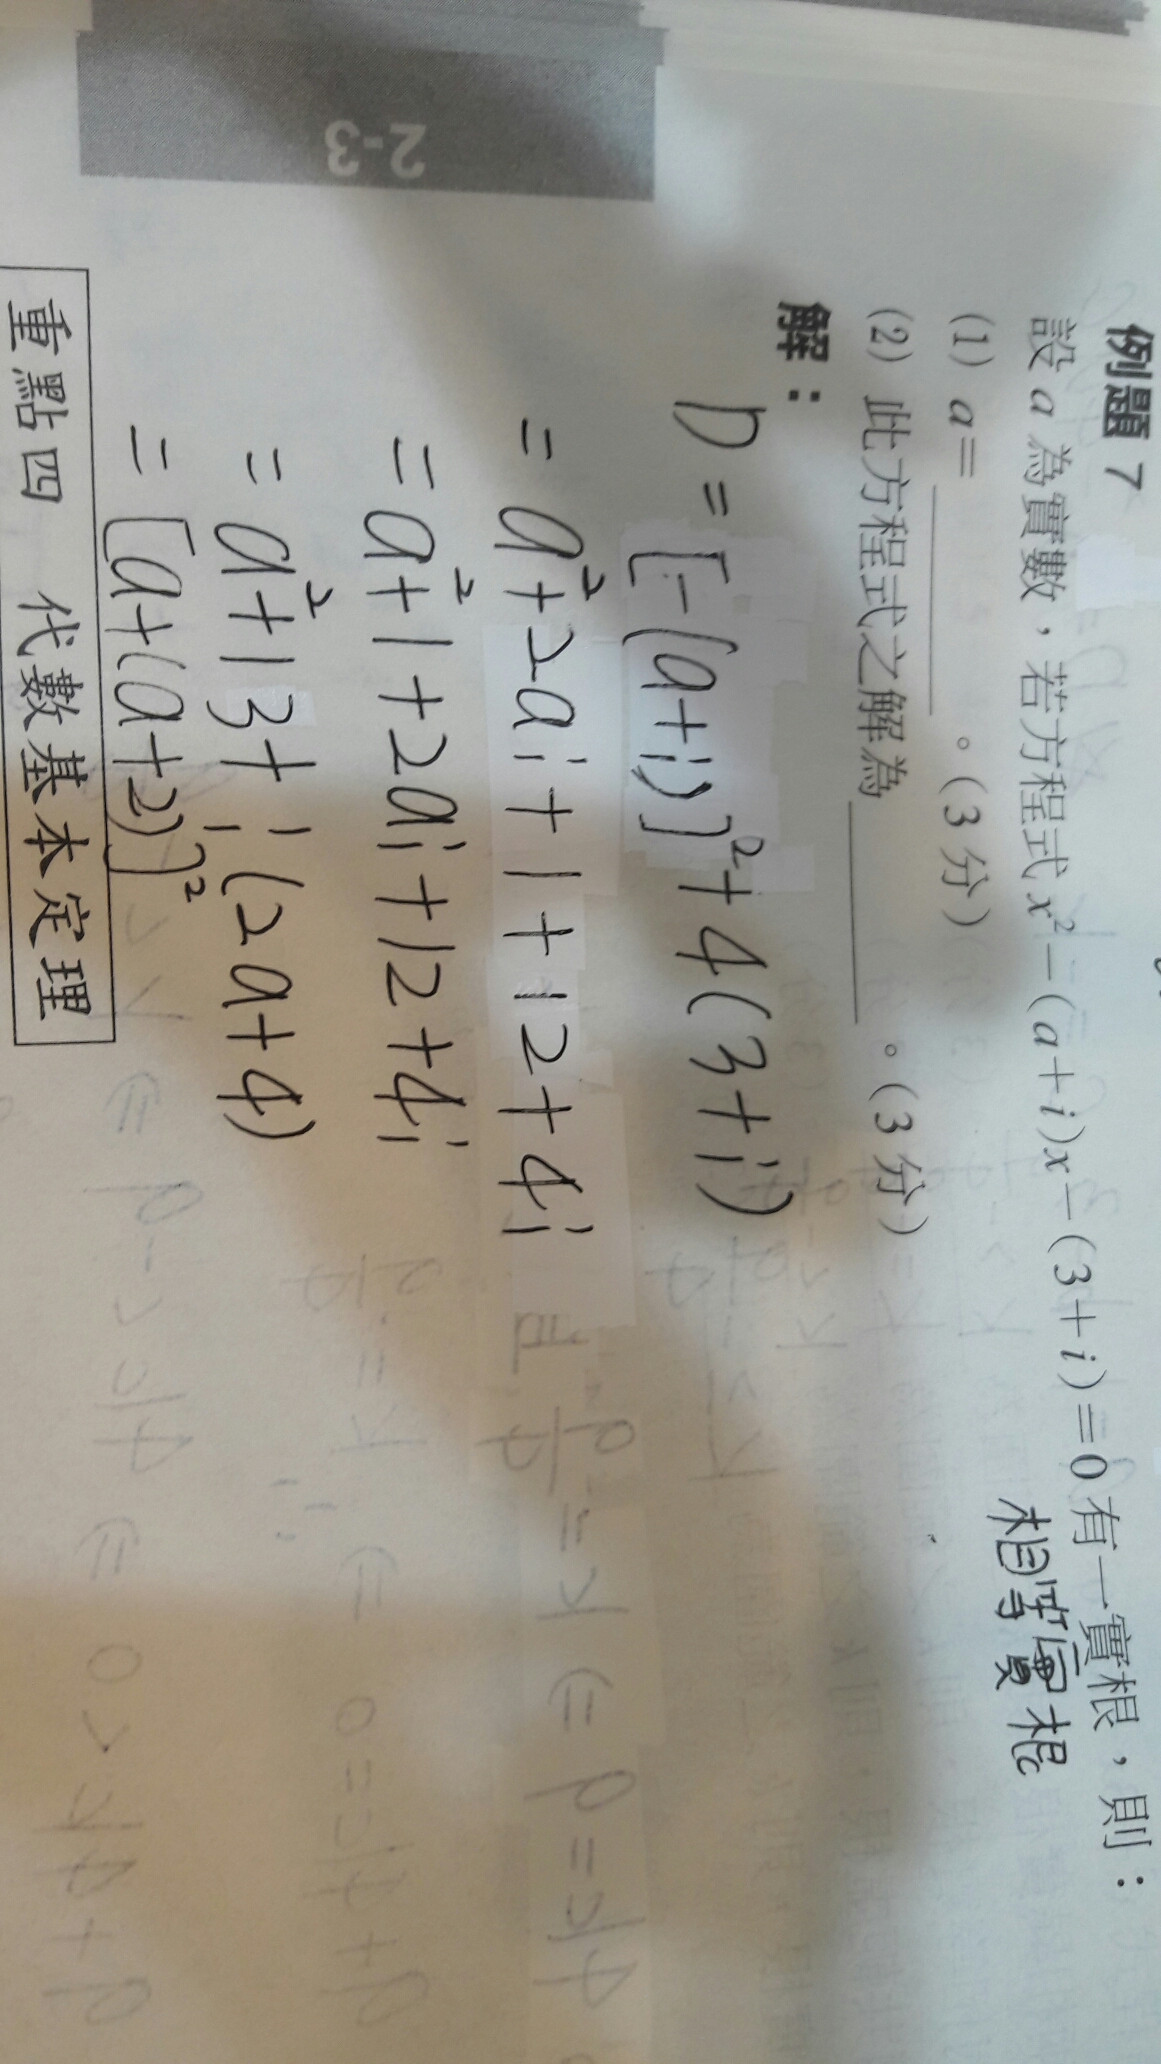 2-3
例題 7
設 a 為實數，若方程式 x²－(a＋i)x－(3＋i)＝0 有一實根，則：
相等實根
(1) a＝________。(3分)
(2) 此方程式之解為________。(3分)
解：
D = [-(a+i)]²+4(3+i)
= a²+2ai+1+12+4i
= a²+1+2ai+12+4i
= a²+13+i(2a+4)
= [a+(a+2)]²
重點四 代數基本定理